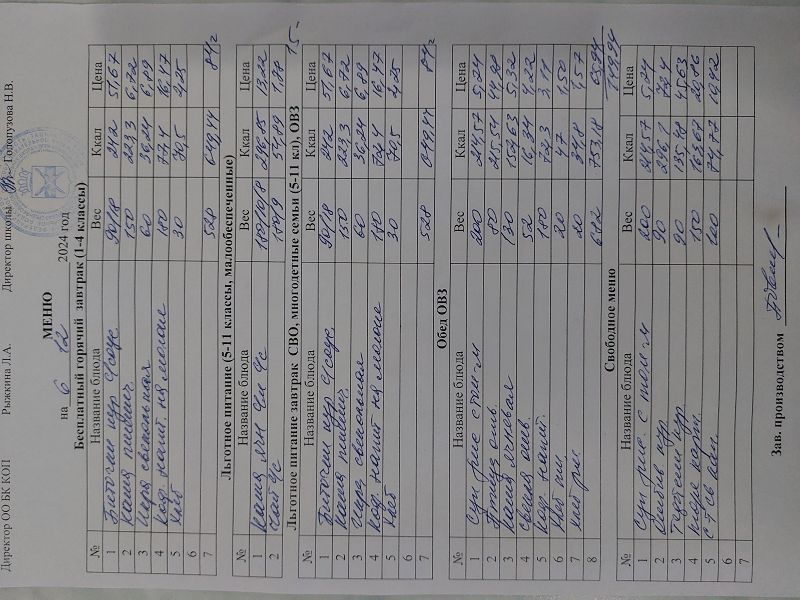 Директор ОО БК КОП Рыжкина Л.А. Директор школы Голопузова Н.В.
МЕНЮ
на 6 12 2024 год
Бесплатный горячий завтрак (1-4 классы)
№ Название блюда Вес Ккал Цена
1 Биточки кур с/соус 90/18 242 51,67
2 Каша пшенич. 150 223,3 6,72
3 Икра свекольная 60 36,24 6,89
4 Коф. напит. на молоке 180 77,4 16,47
5 Хлеб 30 70,5 2,25
6
7 528 649,44 84
Льготное питание (5-11 классы, малообеспеченные)
№ Название блюда Вес Ккал Цена
1 Каша 180/10/8 246,85 13,22
2 Чай с/с 180/9 54,89 1,88
15-
Льготное питание завтрак СВО, многодетные семьи (5-11 кл), ОВЗ
№ Название блюда Вес Ккал Цена
1 Биточки кур с/соус 90/18 242 51,67
2 Каша пшенич. 150 223,3 6,72
3 Икра свекольная 60 36,24 6,89
4 Коф. напит на молоке 180 77,4 16,47
5 Хлеб 30 70,5 2,25
6
7 528 649,44 84
Обед ОВЗ
№ Название блюда Вес Ккал Цена
1 Суп рис с том-м 200 214,57 5,24
2 Птица отв. 80 44,98
3 Каша ячневая 130 154,63 5,32
4 Свекла отв. 52 16,34 4,22
5 Коф. напит. 180 72,3
6 Хлеб пш. 20 47 1,50
7 Хлеб рж 20 34,8 1,57
8 682 753,18 65,94
149,94
Свободное меню
№ Название блюда Вес Ккал Цена
1 Суп рис. с том-м 200 214,57 5,24
2 кур. 90 246,1
3 Тефтели кур. 90 135,48 45,63
4 Пюре карт. 150 20,86
5 100 74,77 10,92
6
7
Зав. производством